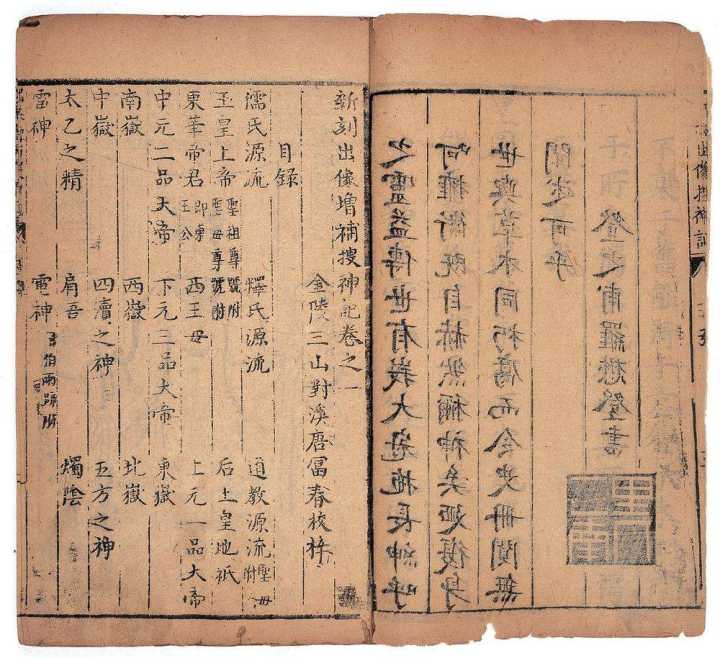 之靈益傳世有峩大冠拖長紳呼
呵擁衛既自赫然稱神矣迺復身
世與草木同朽腐而令史冊闃無
聞述可乎
登之甫羅懋登書
出像搜神記
新刻出像增補搜神記卷之一
金陵三山對溪唐富春校梓
目錄
儒氏源流 釋氏源流 道教源流
玉皇上帝 聖祖尊號附 聖母尊號附 后土皇地祇
東華帝君 即東王公 西王母 上元一品大帝
中元二品大帝 下元三品大帝 東嶽
南嶽 西嶽 北嶽
中嶽 四瀆之神 五方之神
太乙之精 肩吾 燭陰
雷神 電神 風伯雨師附